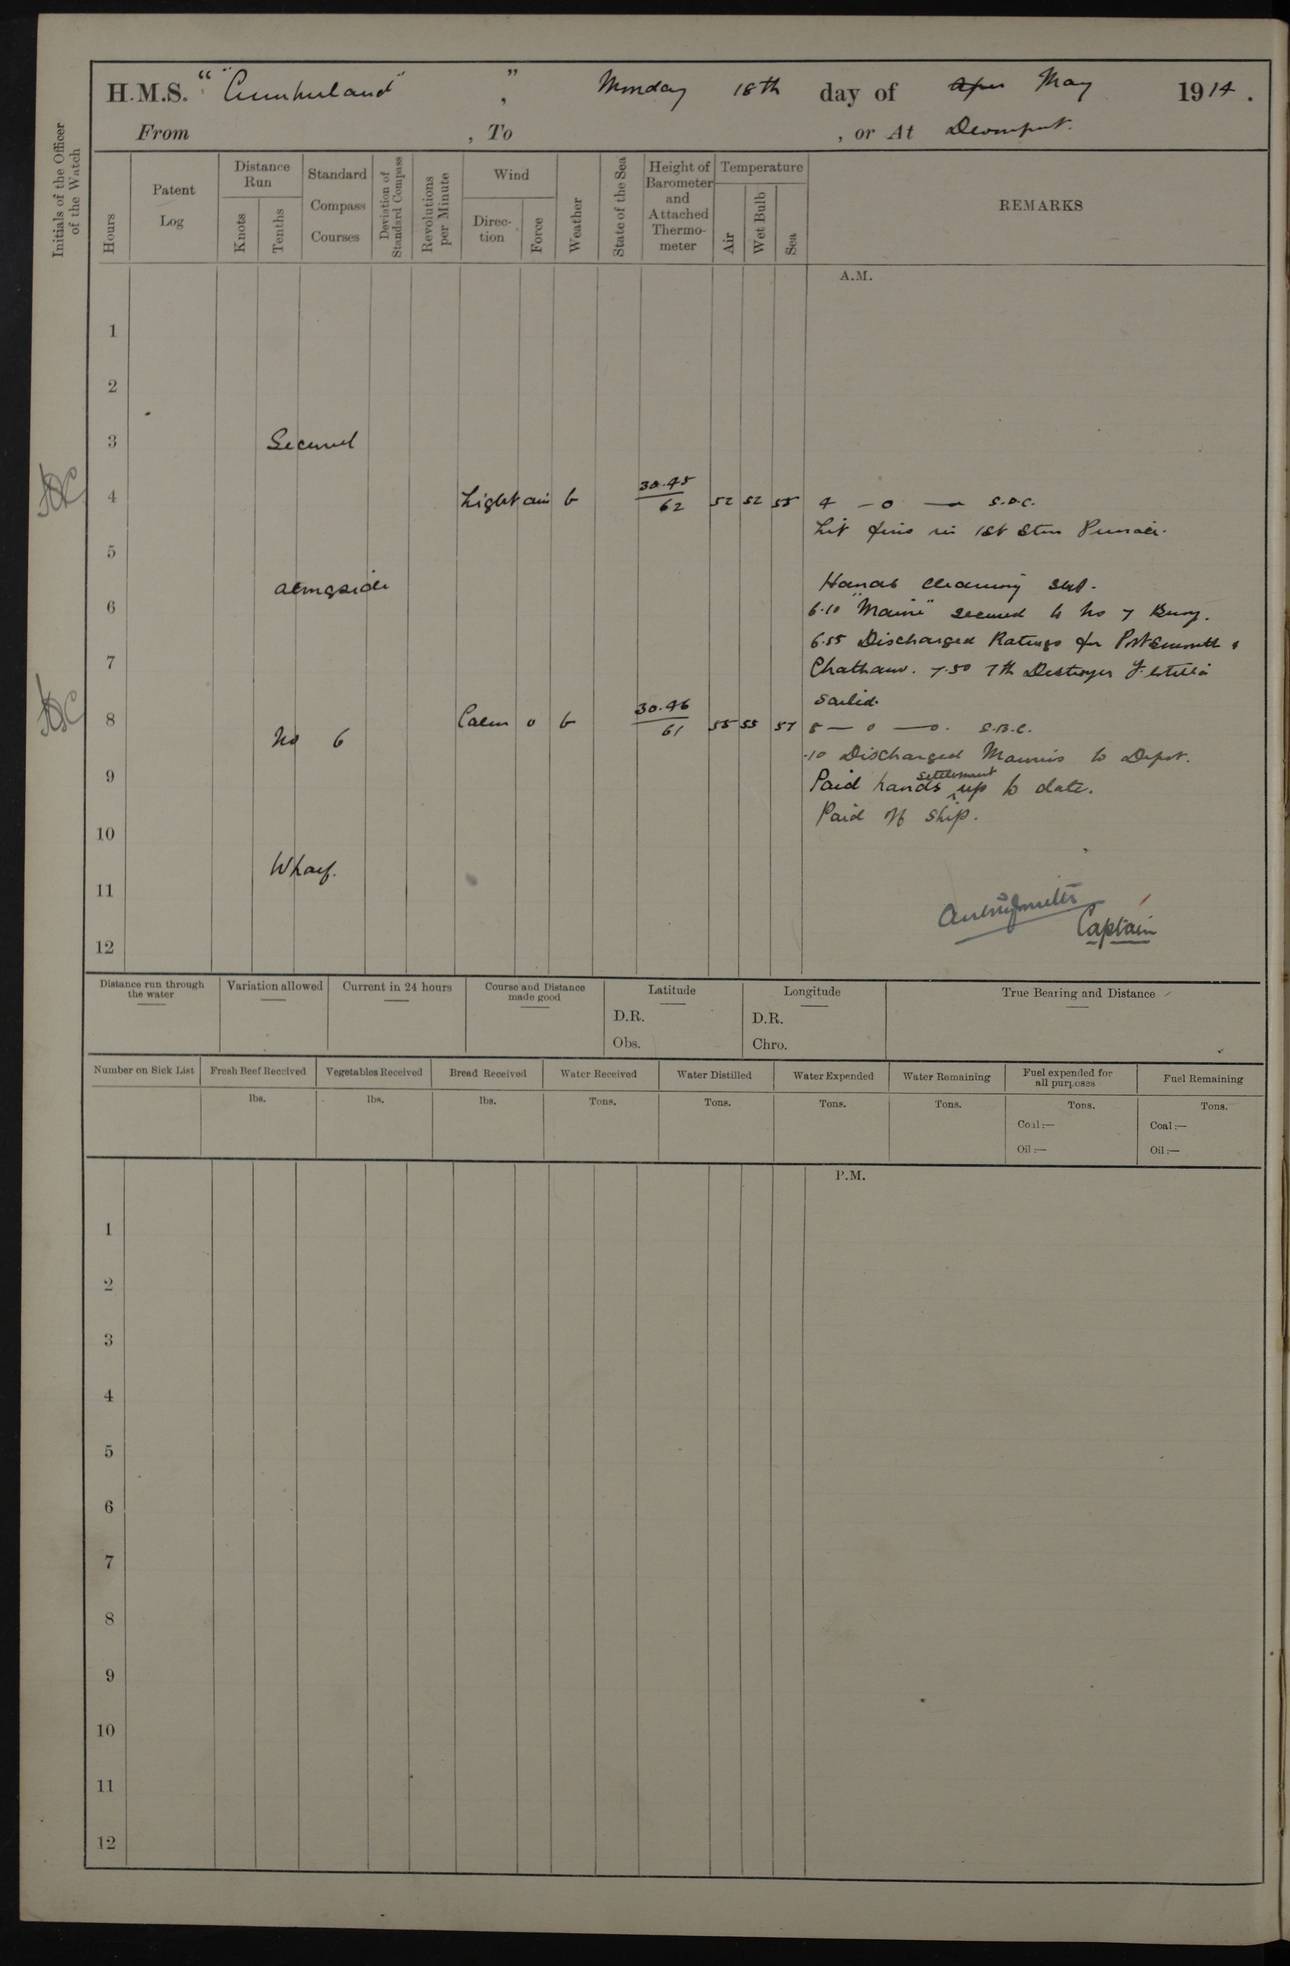 H.M.S. "Cumberland", Monday 18th day of May 1914.
From , To , or At Devonport.
Initials of the Officer of the Watch
Hours
Patent Log
Distance Run
Knots
Tenths
Standard Compass Courses
Deviation of Standard Compass
Revolutions per Minute
Wind
Direction
Force
Weather
State of the Sea
Height of Barometer and Attached Thermometer
Temperature
Air
Wet Bulb
Sea
REMARKS
A.M.
1
2
3 Secured
4 Light airs b 30.45 62 52 52 55 4 – 0 – S.D.C.
Lit fires in 1st Stm Pinnace.
5
alongside Hands cleaning ship.
6 6.10 "Maine" secured to No 7 Buoy.
6.55 Discharged Ratings for Portsmouth &
7 Chatham. 7.50 7th Destroyer Flotilla
sailed.
8 Calm 0 b 30.46 61 55 55 57 8 — 0 — 0.
No 6 .10 Discharged Marines to Depot.
9 Paid hands settlement up to date.
10 Paid off ship.
Wharf.
11
Captain
12
Distance run through the water
Variation allowed
Current in 24 hours
Course and Distance made good
Latitude
D.R.
Obs.
Longitude
D.R.
Chro.
True Bearing and Distance
Number on Sick List
Fresh Beef Received
lbs.
Vegetables Received
lbs.
Bread Received
lbs.
Water Received
Tons.
Water Distilled
Tons.
Water Expended
Tons.
Water Remaining
Tons.
Fuel expended for all purposes
Tons.
Coal :—
Oil :—
Fuel Remaining
Tons.
Coal :—
Oil :—
P.M.
1
2
3
4
5
6
7
8
9
10
11
12